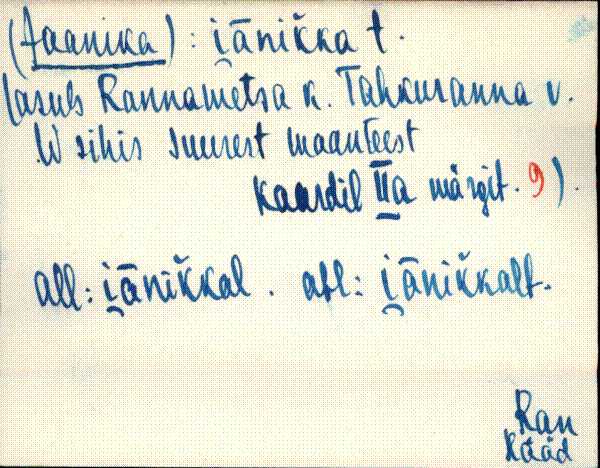 (Jaanika) : i̯ānik̆ka t.
(asub Rannametsa k. Tahkuranna v.
W sihis suurest maanteest
kaardil IIa märgit. 9).
all: i̯ānik̆kal. abl: i̯ānik̆kalt.
Ran
Rääd